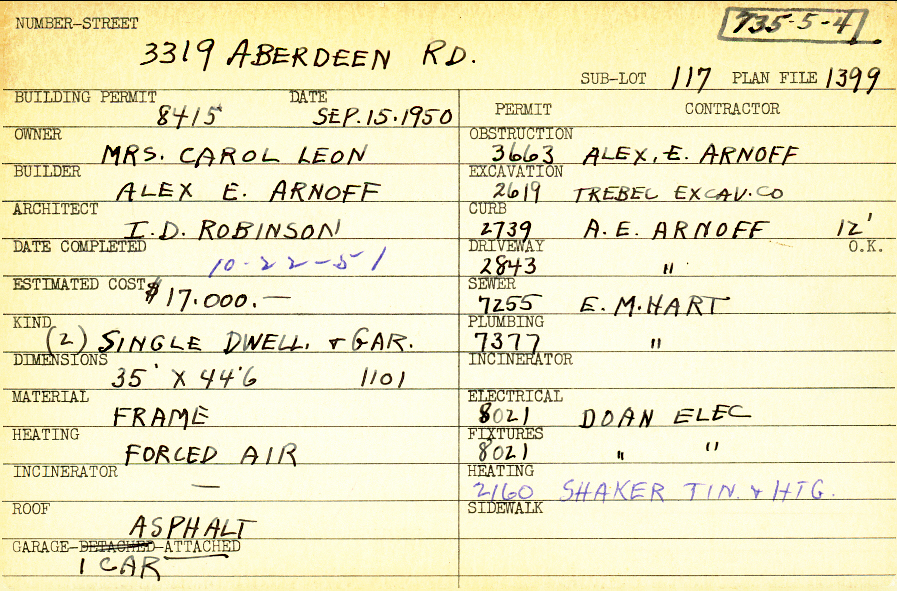 NUMBER-STREET
735-5-4
3319 ABERDEEN RD.
SUB-LOT 117 PLAN FILE 1399
BUILDING PERMIT DATE
8415 SEP.15.1950
OWNER
MRS. CAROL LEON
BUILDER
ALEX E. ARNOFF
ARCHITECT
I.D. ROBINSON
DATE COMPLETED
10-22-51
ESTIMATED COST $17.000.—
KIND
(2) SINGLE DWELL. & GAR.
DIMENSIONS
35' X 44'6 1101
MATERIAL
FRAME
HEATING
FORCED AIR
INCINERATOR
—
ROOF
ASPHALT
GARAGE-DETACHED-ATTACHED
1 CAR
PERMIT CONTRACTOR
OBSTRUCTION
3663 ALEX. E. ARNOFF
EXCAVATION
2619 TREBEC EXCAV.CO
CURB
2739 A.E. ARNOFF 12'
DRIVEWAY O.K.
2843 "
SEWER
7255 E. M. HART
PLUMBING
7377 "
INCINERATOR
ELECTRICAL
8021 DOAN ELEC
FIXTURES
8021 " "
HEATING
2160 SHAKER TIN. & HTG.
SIDEWALK